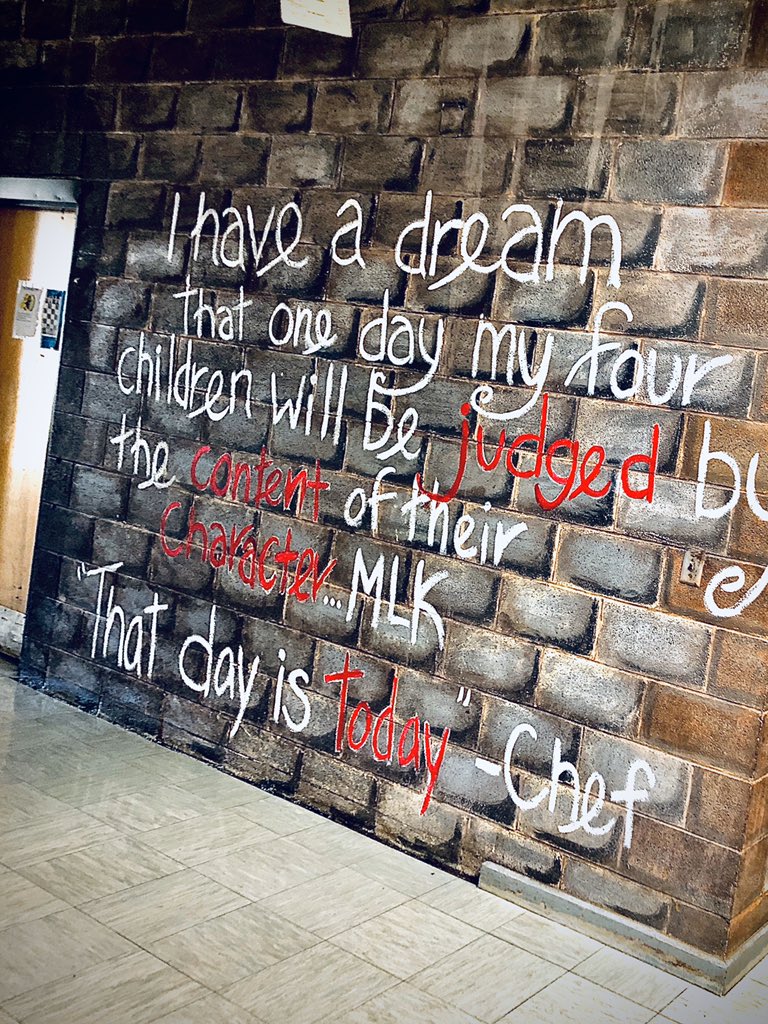 I have a dream
that one day my four
children will be judged by
the content of their
character...MLK
"That day is today" -Chef